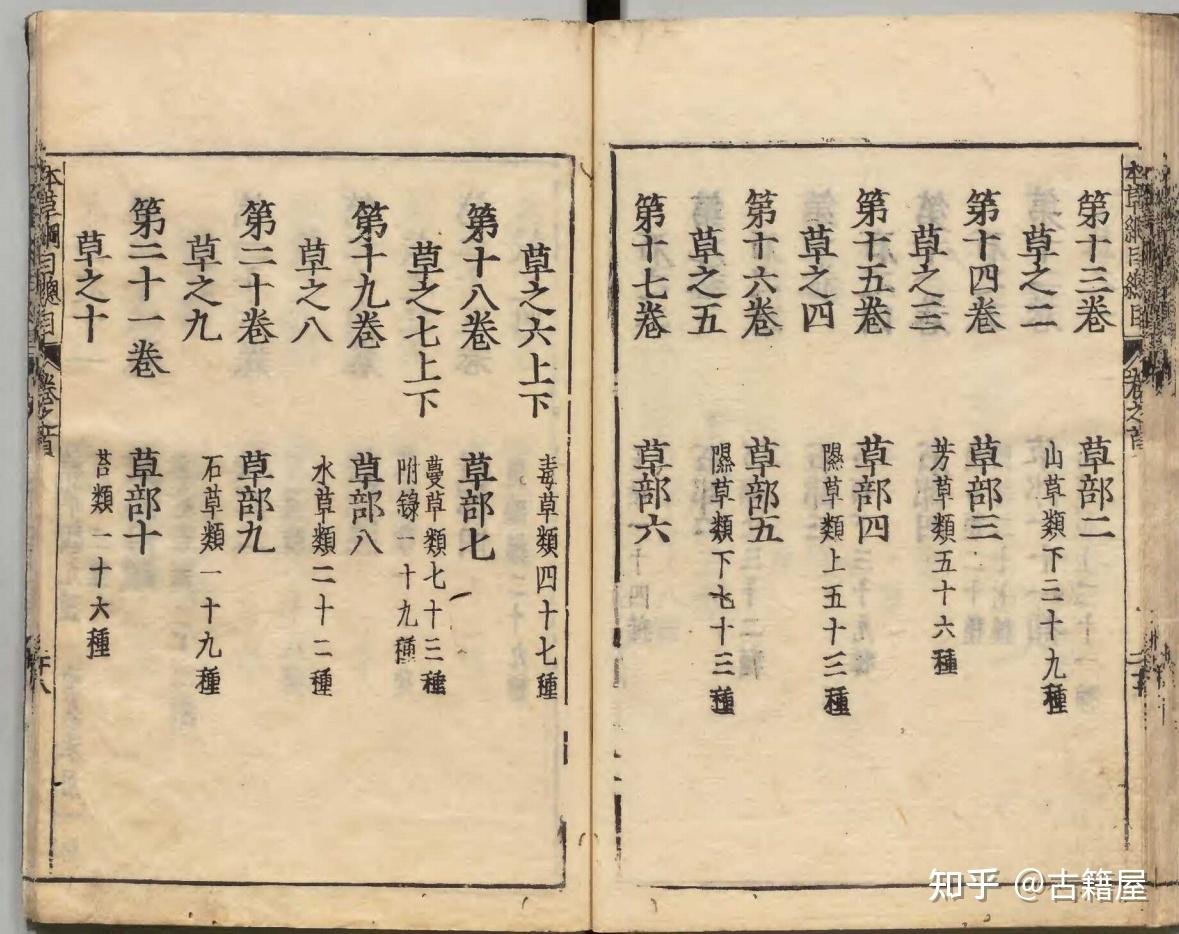 第十三卷 草部二
草之二 山草類下三十九種
第十四卷 草部三
草之三 芳草類五十六種
第十五卷 草部四
草之四 隰草類上五十三種
第十六卷 草部五
草之五 隰草類下七十三種
第十七卷 草部六
草之六上下 毒草類四十七種
第十八卷 草部七
草之七上下 蔓草類七十三種
附錄一十九種
第十九卷 草部八
草之八 水草類二十二種
第二十卷 草部九
草之九 石草類一十九種
第二十一卷 草部十
草之十 苔類一十六種
本草綱目總目 卷之首
知乎 @古籍屋